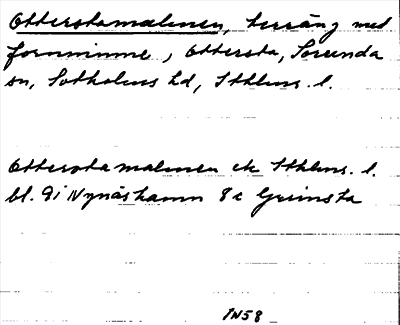 Otterstamalmen, terräng med
fornminne, Ottersta, Sorunda
sn, Sotholms hd, Sthlms. l.
Ottersta malmen ek Sthlms. l.
bl. 9i Nynäshamn 8e Grimsta
IN58